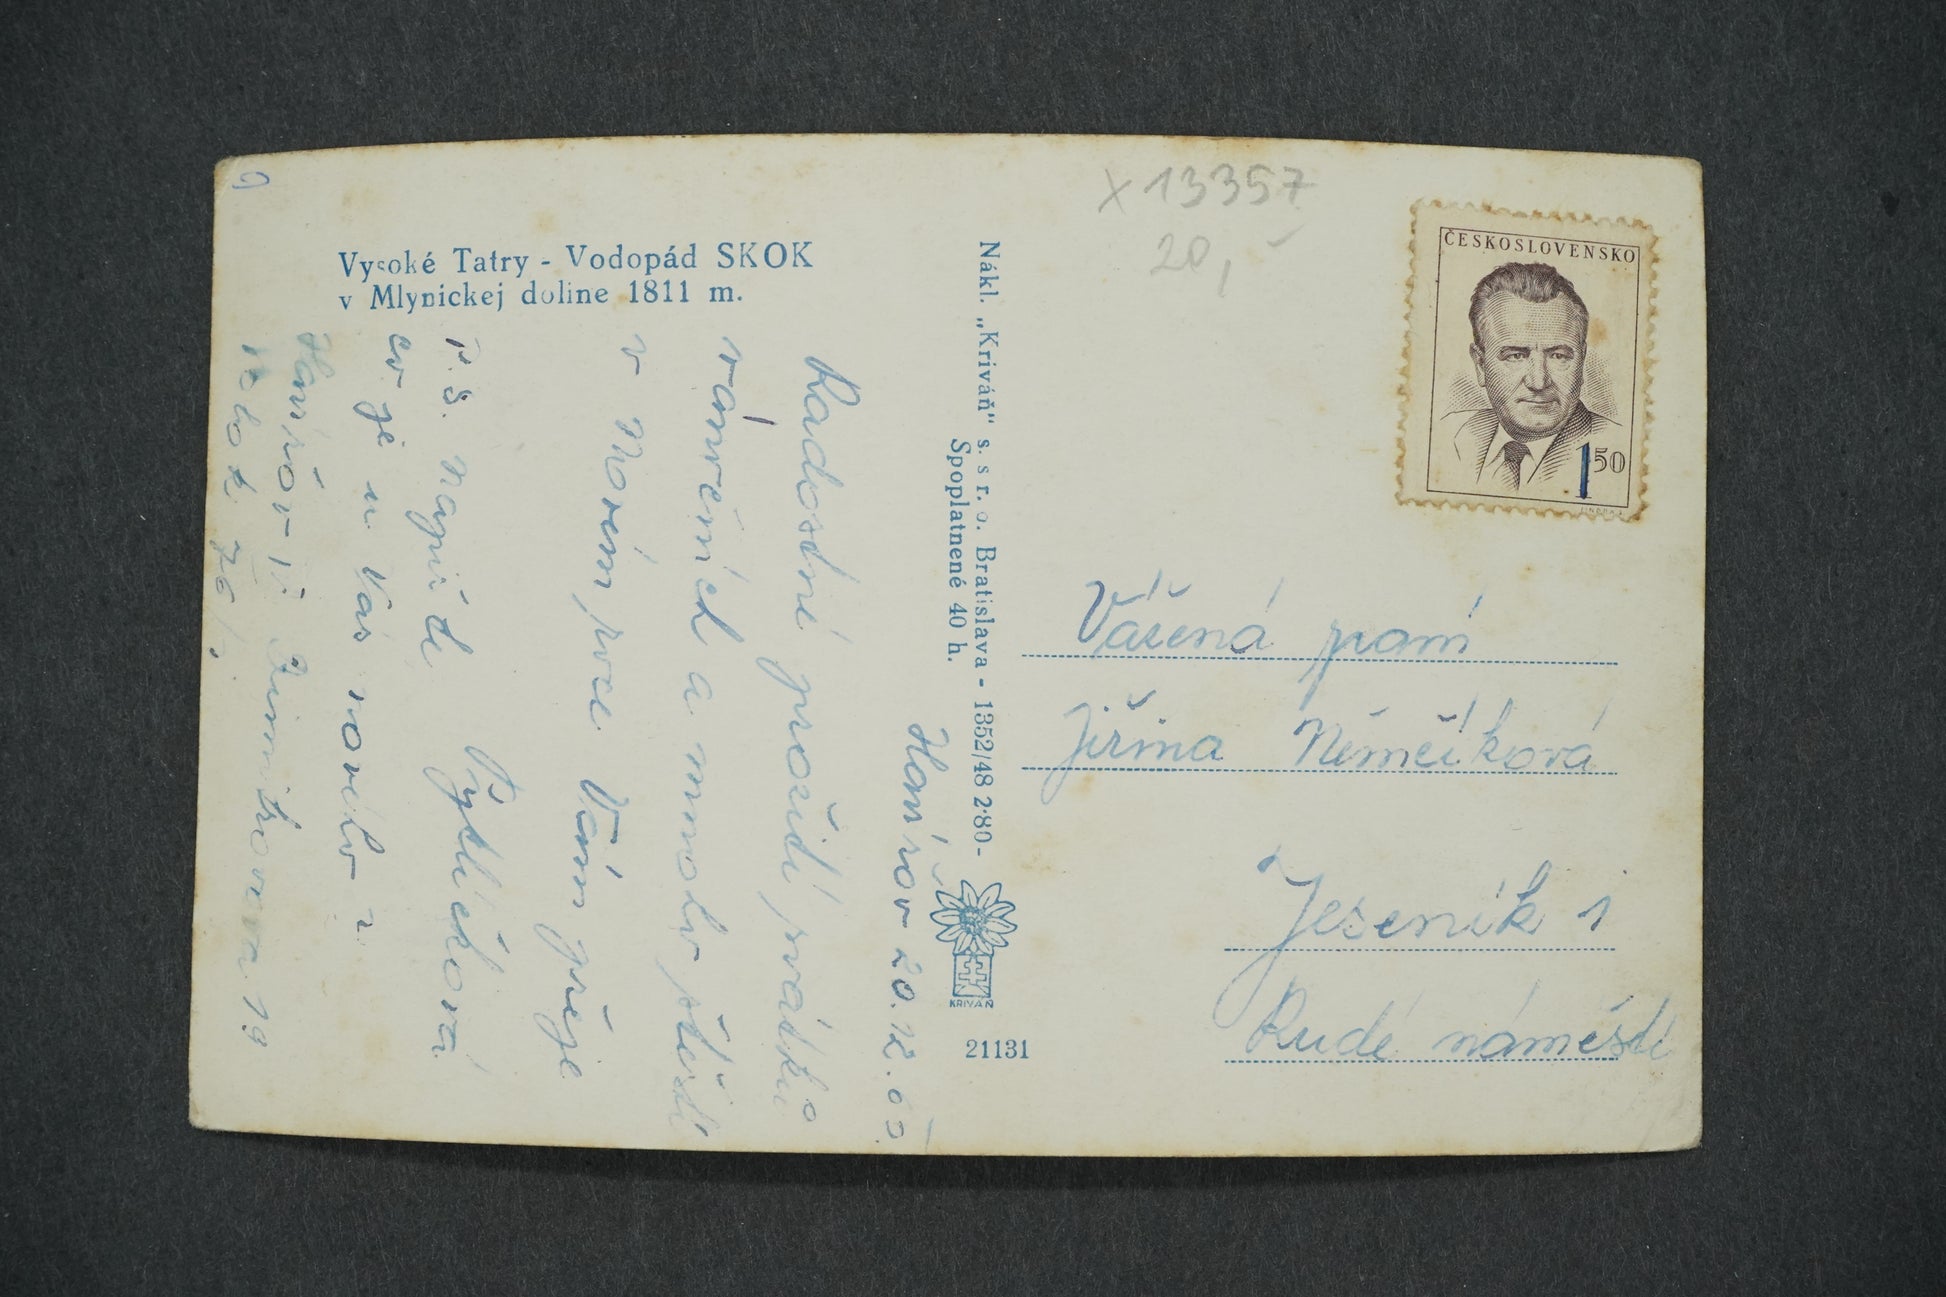 Vysoké Tatry - Vodopád SKOK
v Mlynickej doline 1811 m.
Havířov 20.12.65
Radostné prožití svátků
vánočních a mnoho štěstí
v Novém roce Vám přeje
P.S. Napište
co je u Vás nového ?
Havířov
19
Nákl. „Kriváň" s. s r. o. Bratislava - 1352/48 2·80-
Spoplatnené 40 h.
KRIVÁŇ
21131
x 13357
20,-
ČESKOSLOVENSKO
1,50
Vážená paní
Jiřina Němečková
Jeseník 1
Rudé náměstí